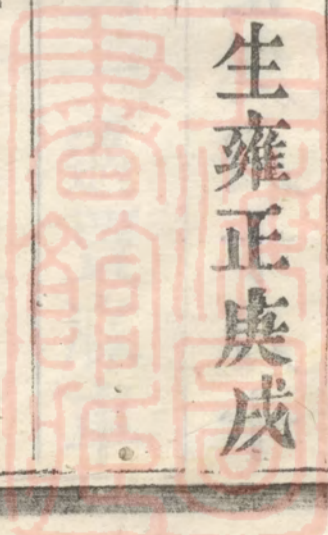 生雍正庚戌